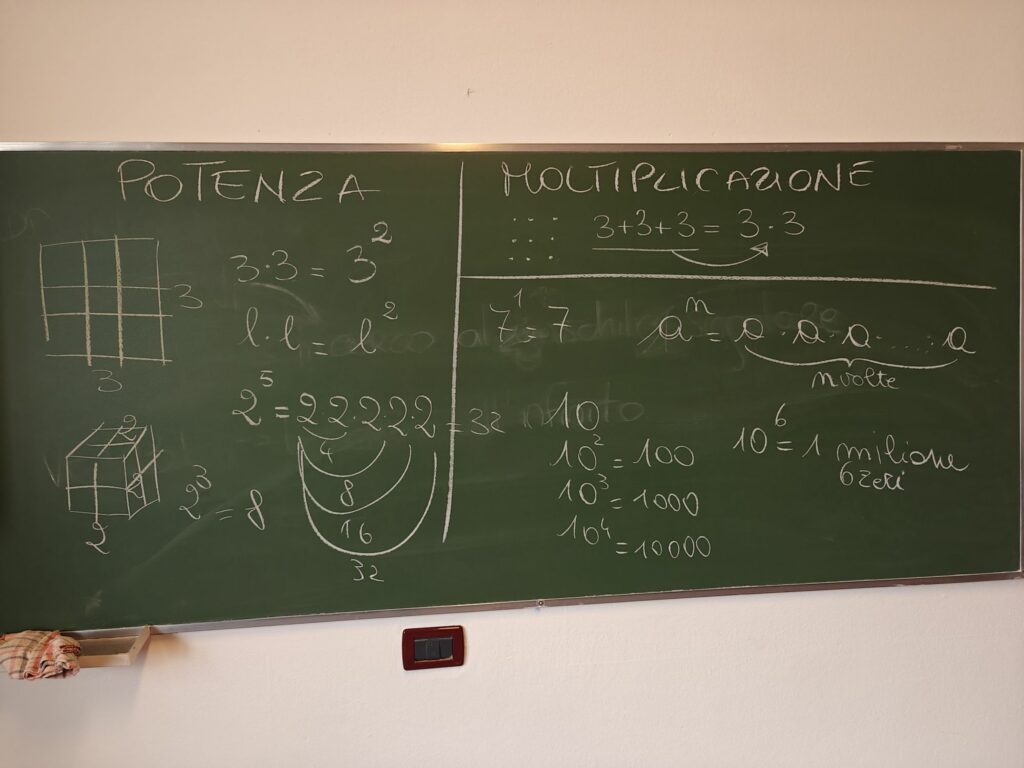 POTENZA
3
3
3·3 = 3²
l·l = l²
2⁵ = 2·2·2·2·2 = 32
4
8
16
32
2
2
2
2³ = 8
MOLTIPLICAZIONE
3+3+3 = 3·3
7¹ = 7
aⁿ = a·a·a·....·a
n volte
10
10² = 100
10³ = 1000
10⁴ = 10000
10⁶ = 1 milione
6 zeri